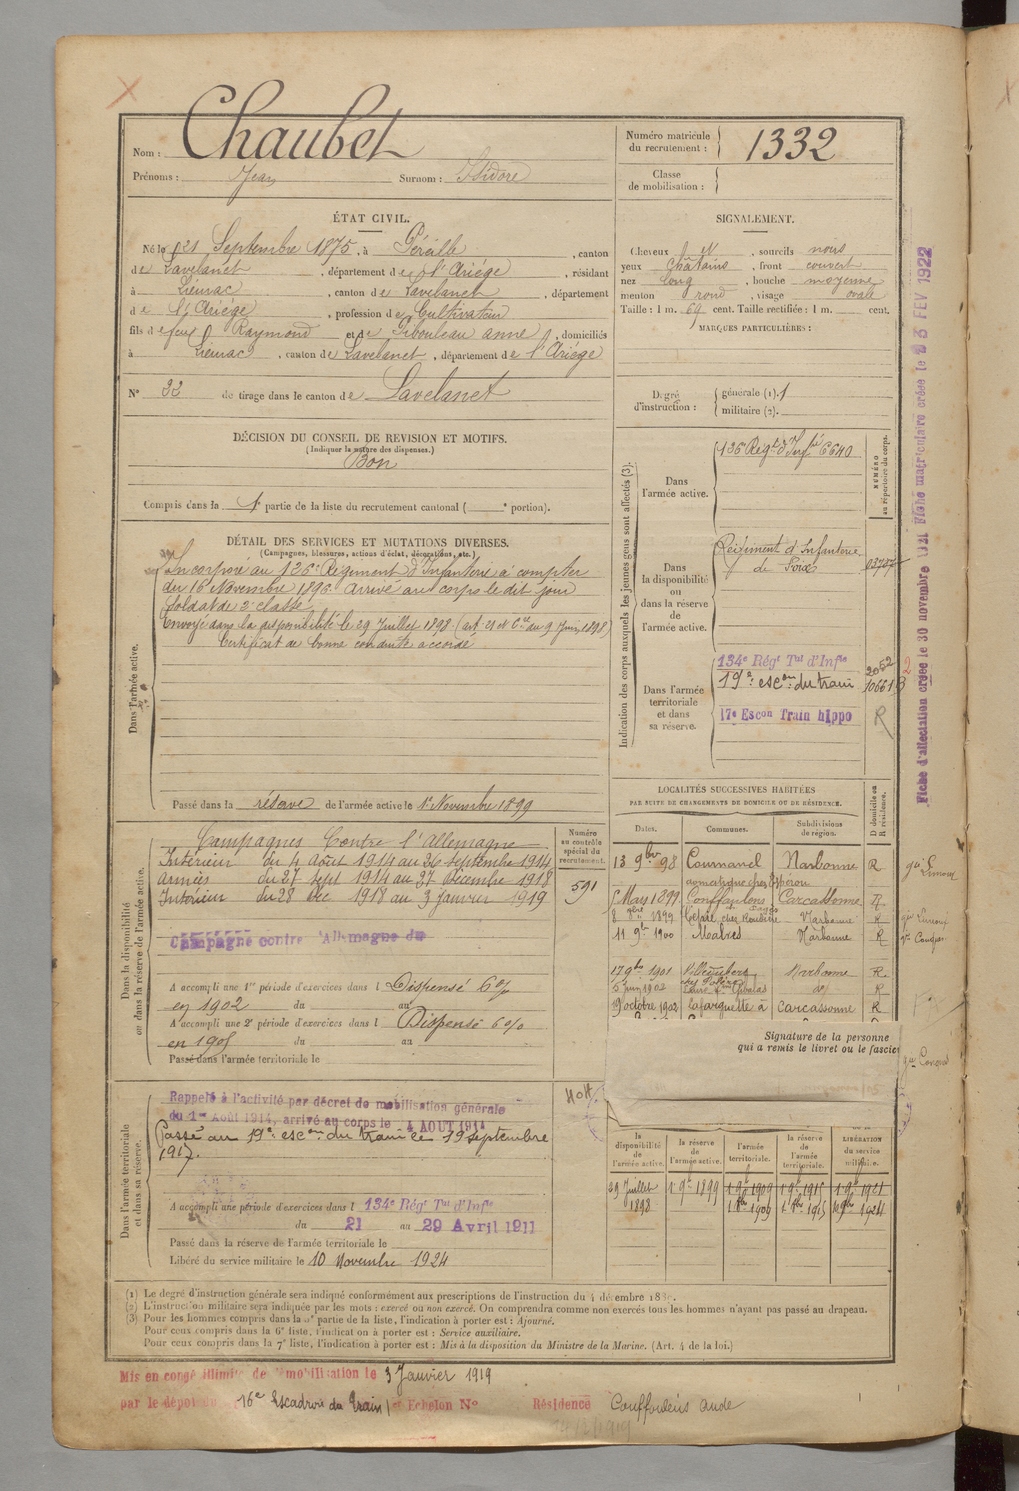 Nom : Chaubet
Prénoms : Jean Surnom : Isidore
Numéro matricule du recrutement : 1332
Classe de mobilisation :
ÉTAT CIVIL.
Né le 21 Septembre 1875, à Péreille, canton
de Lavelanet, département de l'Ariége, résidant
à Lieurac, canton de Lavelanet, département
de l'Ariége, profession de Cultivateur
fils de feu Raymond et de Pibouleau anne, domiciliés
à Lieurac, canton de Lavelanet, département de l'Ariége
N° 32 de tirage dans le canton de Lavelanet
SIGNALEMENT.
Cheveux et, sourcils noirs
yeux châtains, front couvert
nez long, bouche moyenne
menton rond, visage ovale
Taille : 1 m. 69 cent. Taille rectifiée : 1 m. cent.
MARQUES PARTICULIÈRES :
Degré d'instruction : générale (1). 1
militaire (2).
DÉCISION DU CONSEIL DE REVISION ET MOTIFS.
(Indiquer la nature des dispenses.)
Bon
Compris dans la 1e partie de la liste du recrutement cantonal ( e portion).
DÉTAIL DES SERVICES ET MUTATIONS DIVERSES.
(Campagnes, blessures, actions d'éclat, décorations, etc.)
Dans l'armée active.
Incorporé au 126e Régiment d'Infanterie à compter
du 16 Novembre 1896. Arrivé au corps le dit jour
Soldat de 2e classe
Envoyé dans la disponibilité le 29 Juillet 1898 (art. 21 et Cre du 9 Juin 1898)
Certificat de bonne conduite accordé
Passé dans la réserve de l'armée active le 1er Novembre 1899
Indication des corps auxquels les jeunes gens sont affectés (3).
NUMÉRO au répertoire du corps.
Dans l'armée active.
126e Régt d'Infie 6640
Dans la disponibilité ou dans la réserve de l'armée active.
Régiment d'Infanterie
de Foix
Dans l'armée territoriale et dans sa réserve.
134e Régt Tal d'Infie 2052
19e escon du train 10661
17e Escon Train hippo R
Fiche d'affectation créée le 30 novembre 1921 Fiche matriculaire créée le 23 FEV 1922
Dans la disponibilité ou dans la réserve de l'armée active.
Campagnes Contre l'Allemagne
Intérieur du 4 Août 1914 au 26 septembre 1914
Armées du 27 Sept 1914 au 27 Décembre 1918
Intérieur du 28 Dec 1918 au 3 Janvier 1919
Campagne contre l'Allemagne du
A accompli une 1re période d'exercices dans l Dispensé 6%
en 1902 du au
A accompli une 2e période d'exercices dans l Dispensé 6%
en 1905 du au
Passé dans l'armée territoriale le
Numéro au contrôle spécial du recrutement.
591
LOCALITÉS SUCCESSIVES HABITÉES
PAR SUITE DE CHANGEMENTS DE DOMICILE OU DE RÉSIDENCE.
Dates. Communes. Subdivisions de région. D domicile ou R résidence.
13 9bre 98 Cournanel Narbonne R
Mars 1899 Couffoulens Carcassonne R
1899 Narbonne R
11 9bre 1900 Malves Narbonne R
17 9bre 1901 Narbonne R
5 juin 1902 do R
9 octobre 1902 Lafarguette à Carcassonne R
Signature de la personne
qui a remis le livret ou le fascicu
Dans l'armée territoriale et dans sa réserve.
Rappelé à l'activité par décret de mobilisation générale
du 1er Août 1914, arrivé au corps le 4 AOUT 1914
Passé au 19e escon du train le 19 septembre
1917.
A accompli une période d'exercices dans l 134e Régt Tal d'Infie
du 21 au 29 Avril 1911
Passé dans la réserve de l'armée territoriale le
Libéré du service militaire le 10 Novembre 1924
la disponibilité de l'armée active. la réserve de l'armée active. l'armée territoriale. la réserve de l'armée territoriale. LIBÉRATION du service militaire.
29 Juillet 1898 1 9bre 1899 1 9bre 1909 1 9bre 1915 1 9bre 1921
1 8bre 1909 1 8bre 1915 10 9bre 1924
(1) Le degré d'instruction générale sera indiqué conformément aux prescriptions de l'instruction du 4 décembre
(2) L'instruction militaire sera indiquée par les mots : exercé ou non exercé. On comprendra comme non exercés tous les hommes n'ayant pas passé au drapeau.
(3) Pour les hommes compris dans la 5e partie de la liste, l'indication à porter est : Ajourné.
Pour ceux compris dans la 6e liste, l'indication à porter est : Service auxiliaire.
Pour ceux compris dans la 7e liste, l'indication à porter est : Mis à la disposition du Ministre de la Marine. (Art. 4 de la loi.)
Mis en congé illimité de démobilisation le 3 Janvier 1919
par le dépôt du 16e Escadron du Train 1er Echelon N° Résidence Couffoulens Aude